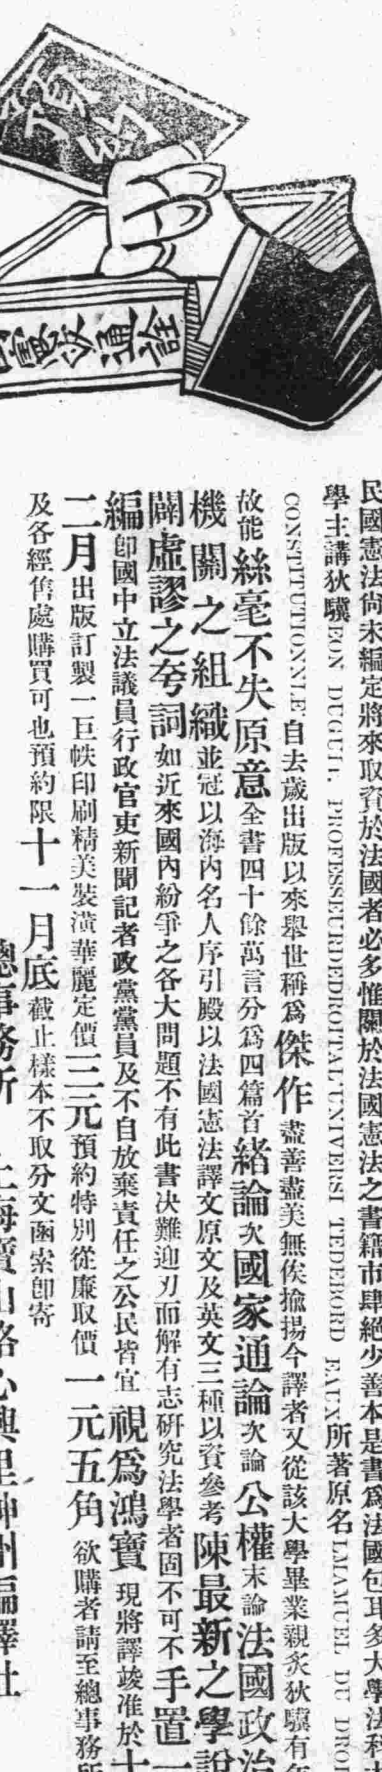 預約
憲政通詮
民國憲法尙未編定將來取資於法國者必多惟關於法國憲法之書籍市肆絶少善本是書爲法國包耳多大學法科大
學主講狄驥EON DUGUIT, PROFESSEURDEDROITAL'UNIVERSI TEDEBORD EAUX所著原名LMAMUEL DU DROI
CONSTITUTIONNLE自去歲出版以來舉世稱爲傑作盡善盡美無俟揄揚今譯者又從該大學畢業親炙狄驥有年
故能絲毫不失原意全書四十餘萬言分爲四篇首緒論次國家通論次論公權末論法國政治
機關之組織並冠以海內名人序引殿以法國憲法譯文原文及英文三種以資參考陳最新之學說
闢虛謬之夸詞如近來國內紛爭之各大問題不有此書决難迎刃而解有志硏究法學者固不可不手置一
編卽國中立法議員行政官吏新聞記者政黨黨員及不自放棄責任之公民皆宜視爲鴻寶現將譯竣准於十
二月出版訂製一巨帙印刷精美裝潢華麗定價三元預約特別從廉取價一元五角欲購者請至總事務所
及各經售處購買可也預約限十一月底截止樣本不取分文函索卽寄
總事務所 上海寶山路心興里神州編譯社